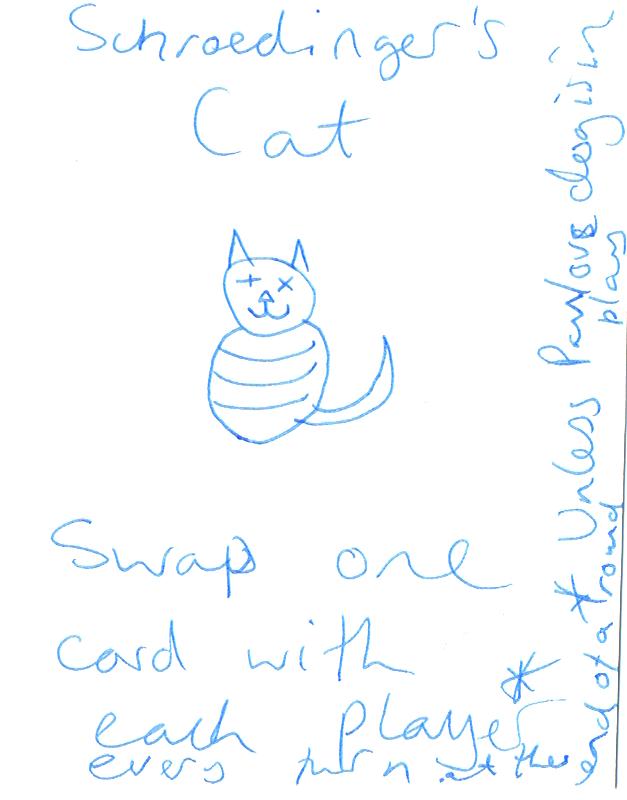 Schroedinger's
Cat
Swap one
card with
each player*
every turn at the
end of a round
* Unless Pavlovs dog is in
play